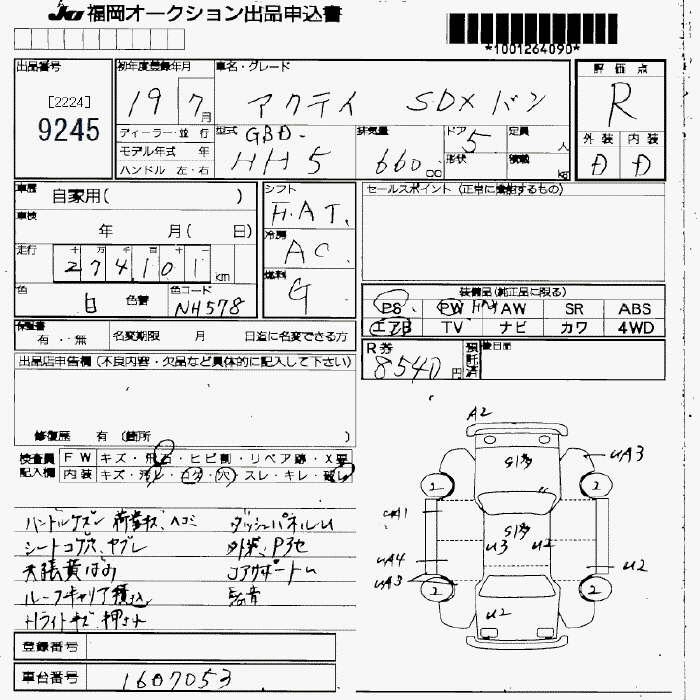 JU 福岡オークション出品申込書
*1001264090*
出品番号
[2224]
9245
初年度登録年月
19 7月
車名・グレード
アクティ SDXバン
評価点
R
外装 内装
D D
ディーラー・並行
モデル年式 年
ハンドル 左・右
型式
GBD-
HH5
排気量
660 cc
ドア
5
形状
定員
人
積載
kg
車歴
自家用( )
車検
年 月( 日)
走行
十 万 千 百 十 一
274101 km
色
白
色替
色コード
NH578
シフト
F.A.T.
冷房
AC
燃料
G
セールスポイント (正常に機能するもの)
装備品(純正品に限る)
PS PW AW SR ABS
エアB TV ナビ カワ 4WD
保証書
有・無
名変期限 月 日迄に名変できる方
R券
8540円
預託済
後日品
出品店申告欄 (不良内容・欠品など具体的に記入して下さい)
修復歴 有 (箇所 )
検査員
記入欄
FW キズ・飛石・ヒビ割・リペア跡・X要
内装 キズ・汚れ・コゲ・穴・スレ・キレ・破レ
ハンドルケズレ 荷室キズ、ヘコミ
シートコゲ穴、ヤブレ
天張黄ばみ
ルーフキャリア積込
Hライトキズ、押さえ
ダッシュパネルU
外装、Pタ他
コアサポートU
A2
S1多
UA3
2
2
UA1
S1多
U3
U2
UA4
UA3
U2
2
2
U2
登録番号
車台番号
1607053